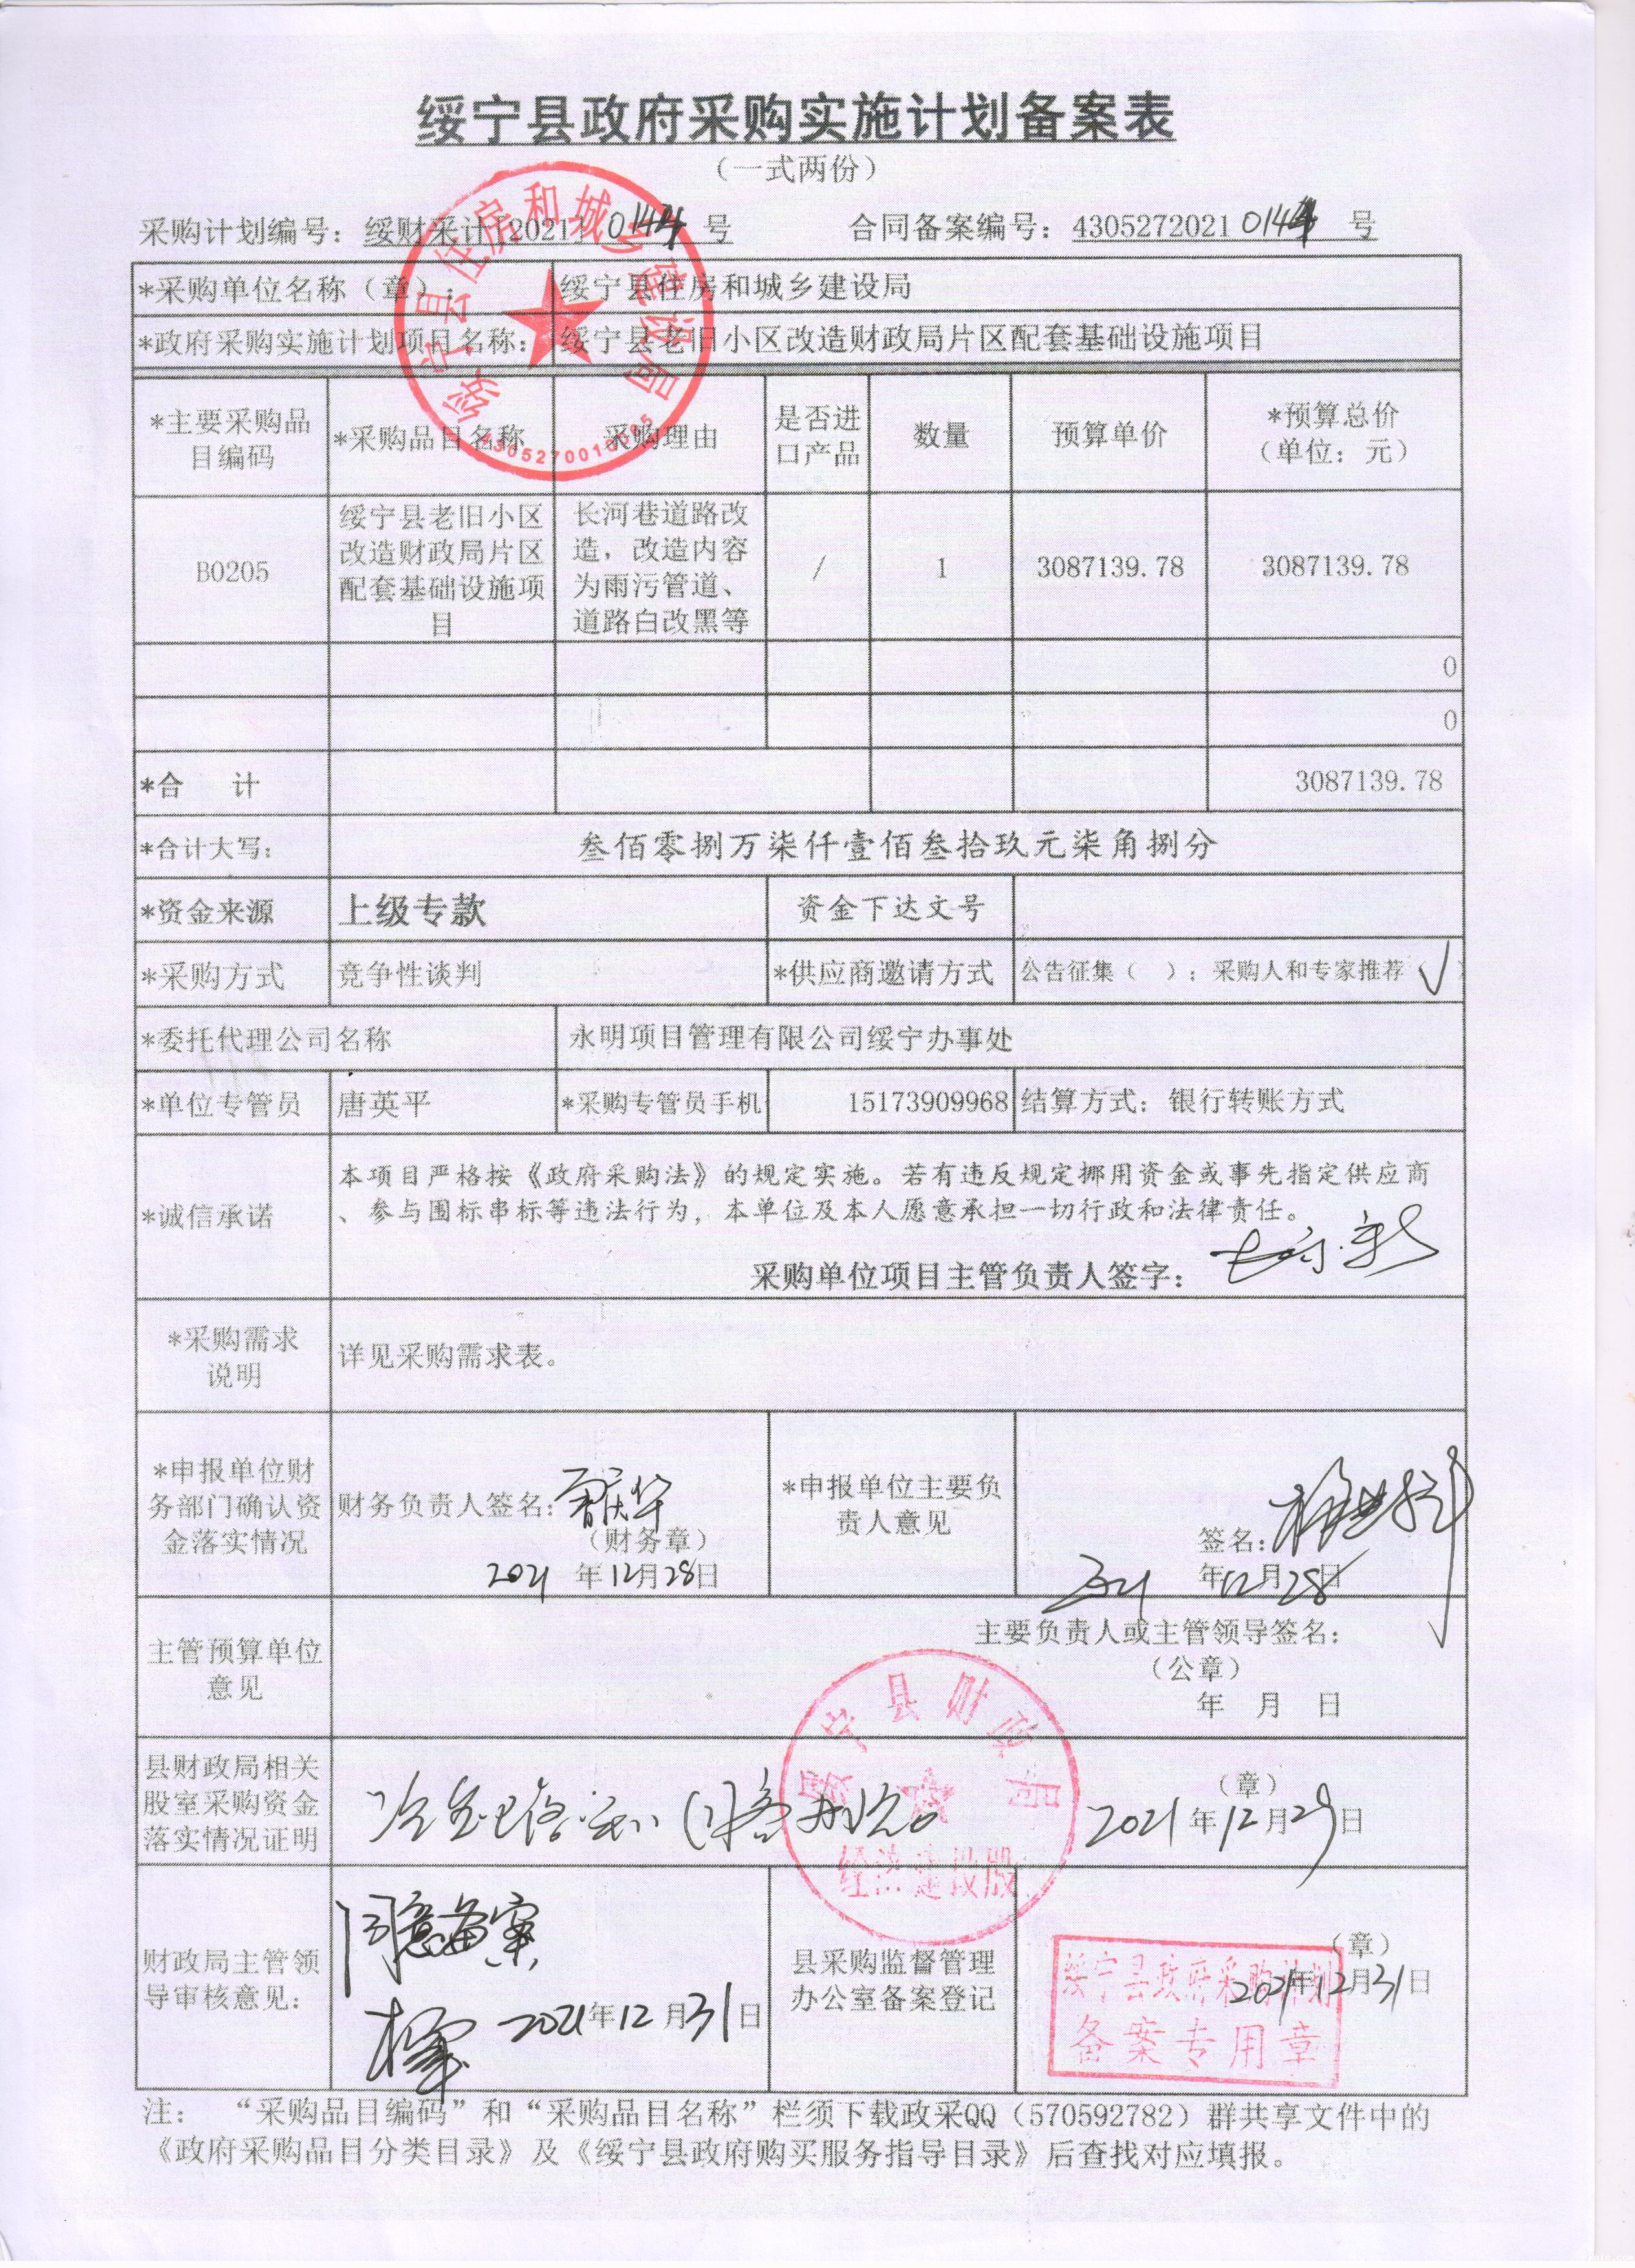 绥宁县政府采购实施计划备案表
（一式两份）
采购计划编号：绥财采计[2021] 号
合同备案编号：4305272021 号
*采购单位名称（章）：
绥宁县住房和城乡建设局
*政府采购实施计划项目名称：
绥宁县老旧小区改造财政局片区配套基础设施项目
*主要采购品
目编码
*采购品目名称
采购理由
是否进
口产品
数量
预算单价
*预算总价
（单位：元）
B0205
绥宁县老旧小区
改造财政局片区
配套基础设施项
目
长河巷道路改
造，改造内容
为雨污管道、
道路白改黑等
/
1
3087139.78
3087139.78
0
0
*合 计
3087139.78
*合计大写：
叁佰零捌万柒仟壹佰叁拾玖元柒角捌分
*资金来源
上级专款
资金下达文号
*采购方式
竞争性谈判
*供应商邀请方式
公告征集（ ）；采购人和专家推荐（√）
*委托代理公司名称
永明项目管理有限公司绥宁办事处
*单位专管员
唐英平
*采购专管员手机
15173909968
结算方式：银行转账方式
*诚信承诺
本项目严格按《政府采购法》的规定实施。若有违反规定挪用资金或事先指定供应商
、参与围标串标等违法行为，本单位及本人愿意承担一切行政和法律责任。
采购单位项目主管负责人签字：
*采购需求
说明
详见采购需求表。
*申报单位财
务部门确认资
金落实情况
财务负责人签名：
（财务章）
2021 年12月28日
*申报单位主要负
责人意见
签名：
2021 年12月28日
主管预算单位
意见
主要负责人或主管领导签名：
（公章）
年 月 日
县财政局相关
股室采购资金
落实情况证明
（章）
2021年12月29日
绥宁县财政局
经济建设股
财政局主管领
导审核意见：
同意备案
2021年12月31日
县采购监督管理
办公室备案登记
（章）
2021年12月31日
绥宁县政府采购计划
备案专用章
注： “采购品目编码”和“采购品目名称”栏须下载政采QQ（570592782）群共享文件中的
《政府采购品目分类目录》及《绥宁县政府购买服务指导目录》后查找对应填报。
绥宁县住房和城乡建设局